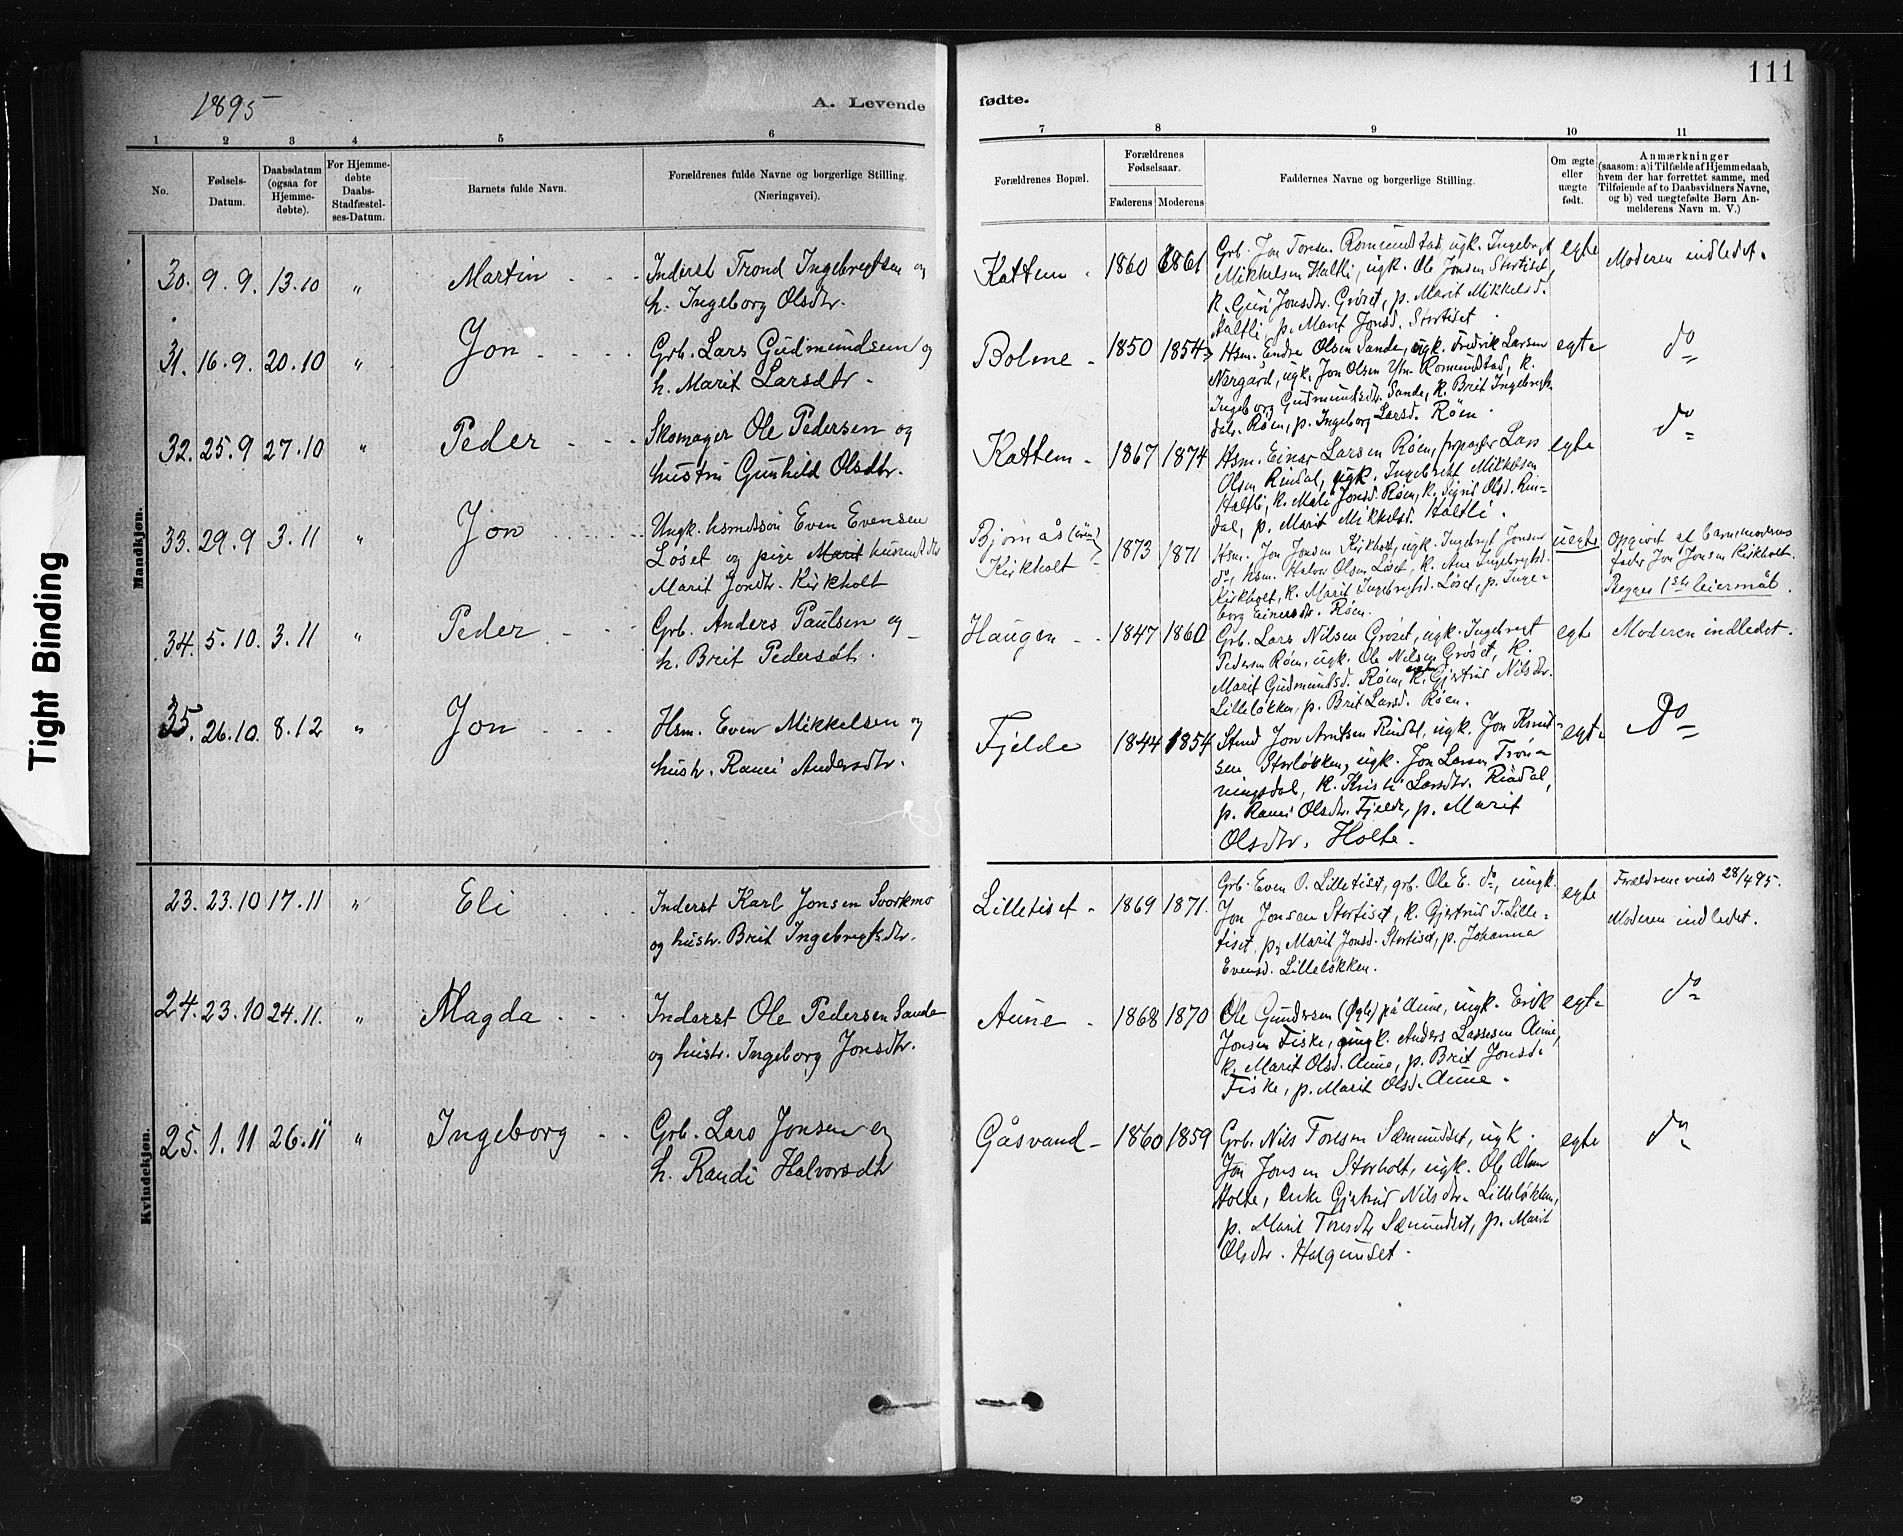 1895
A. Levende
fødte.
111
1 2 3 4 5 6 7 8 9 10 11
No.
Fødsels-
Datum.
Daabsdatum
(ogsaa for
Hjemme-
døbte).
For Hjemme-
døbte
Daabs-
Stadfæstel-
ses-Datum.
Barnets fulde Navn.
Forældrenes fulde Navne og borgerlige Stilling.
(Næringsvei).
Forældrenes Bopæl.
Forældrenes
Fødselsaar.
Faderens Moderens
Faddernes Navne og borgerlige Stilling.
Om ægte
eller
uægte
født.
Anmærkninger
(saasom: a) i Tilfælde af Hjemmedaab,
hvem der har forrettet samme, med
Tilføiende af to Daabsvidners Navne,
og b) ved uægtefødte Børn An-
melderens Navn m. V.)
Mandkjøn.
30. 9.9. 13.10 " Martin
Inderst Trond Ingebrigtsen og
h. Ingeborg Olsdtr.
Kattem 1860 1861
Grb. Jon Toresen Romundstad, ugk. Ingebrigt
Mikkelsen Haltli, ugk. Ole Jonsen Stortiset,
k. Guri Jonsdtr. Grøset, p. Marit Mikkelsd.
Haltli, p. Marit Jonsd. Stortiset
egte
Moderen indledet.
31. 16.9. 20.10 " Jon
Grb. Lars Gudmundsen og
h. Marit Larsdtr.
Bolme 1850 1854
Hsm. Endre Olsen Sande, ugk. Fredrik Larsen
Nergard, ugk. Jon Olsen Ytre Romundstad, k.
Ingeborg Gudmundsdtr. Sande, k. Brit Ingebrigts-
dtr. Røen, p. Ingeborg Larsd. Røen.
egte
do
32. 25.9 27.10 " Peder
Skomager Ole Pedersen og
hustru Gunhild Olsdtr.
Kattem 1867 1874
Hsm. Einar Larsen Røen, Lars
Olsen Rindal, ugk. Ingebrigt Mikkelsen
Haltli, k. Mali Jonsd. Røen, k. Sigrid Olsd. Rin-
dal, p. Marit Mikkelsd. Haltli.
egte
do
33. 29.9 3.11 " Jon
Ungk. husmdssøn Even Evensen
Løset og pige Marit husmdsdtr
Marit Jonsdtr. Kirkholt
Bjørnås
Kirkholt 1873 1871
Hsm. Jon Jonsen Kirkholt, ugk. Ingebrigt Jonsen
do, hsm. Halvor Olsen Løset, k. Ane Ingebrigtsd.
Kirkholt, k. Marit Ingebrigtsd. Løset, p. Inge-
borg Einarsdtr. Røen.
uegte
Opgivet af barnemoderens
fader Jon Jonsen Kirkholt.
Begges 1ste leiermål.
34. 5.10. 3.11 " Peder
Grb. Anders Paulsen og
h. Brit Pedersdt.
Haugen 1847 1860
Grb. Lars Nilsen Grøset, ugk. Ingebrigt
Pedersen Røen, ugk. Ole Nilsen Grøset, k.
Marit Gudmundsd. Røen, k. Gjertrud Nilsdtr.
Lilleløkken, p. Brit Larsd. Røen.
egte
Moderen indledet.
35. 26.10. 8.12 " Jon
Hsm. Even Mikkelsen og
hustr. Ranei Andersdtr.
Fjelde 1844 1854
Stud Jon Arntsen Rindal, ugk. Jon Knud-
sen Storløkken, ugk. Jon Larsen Trøn-
ningsdal, k. Kristi Larsdtr. Rindal,
p. Ranei Olsdtr. Fjelde, p. Marit
Olsdtr. Holte.
egte
Do
Kvindekjøn.
23. 23.10 17.11 " Eli
Inderst Karl Jonsen Svorkmo
og hustr. Brit Ingebrigtsdtr.
Lilletiset 1869 1871.
Grb. Even O. Lilletiset, grb. Ole E. do, ungk.
Jon Jonsen Stortiset, k. Gjertrud T. Lille-
tiset, p. Marit Jonsd. Stortiset, p. Johanna
Evensd. Lilleløkken.
egte
Forældrene viede 28/4 95.
Moderen indledet.
24. 23.10 24.11. " Magda
Inderst Ole Pedersen Sande
og hustr. Ingeborg Jonsdtr.
Aune 1868 1870
Ole Gundersen på Aune, ungk. Erik
Jonsen Fiske, ungk. Anders Lassesen Aune,
k. Marit Olsd. Aune, p. Brit Jonsd.
Fiske, p. Marit Olsd. Aune.
egte
do
25. 1.11 26.11 " Ingeborg
Grb. Lars Jonsen og
h. Randi Halvorsdtr
Gåsvand 1860 1859
Grb. Nils Toresen Sæmundset, ugk.
Jon Jonsen Storholt, ugk. Ole Olsen
Holte, Enke Gjertrud Nilsdtr. Lilleløkken,
p. Marit Toresdtr Sæmundset, p. Marit
Olsdtr. Helgunset.
egte
do
Tight Binding